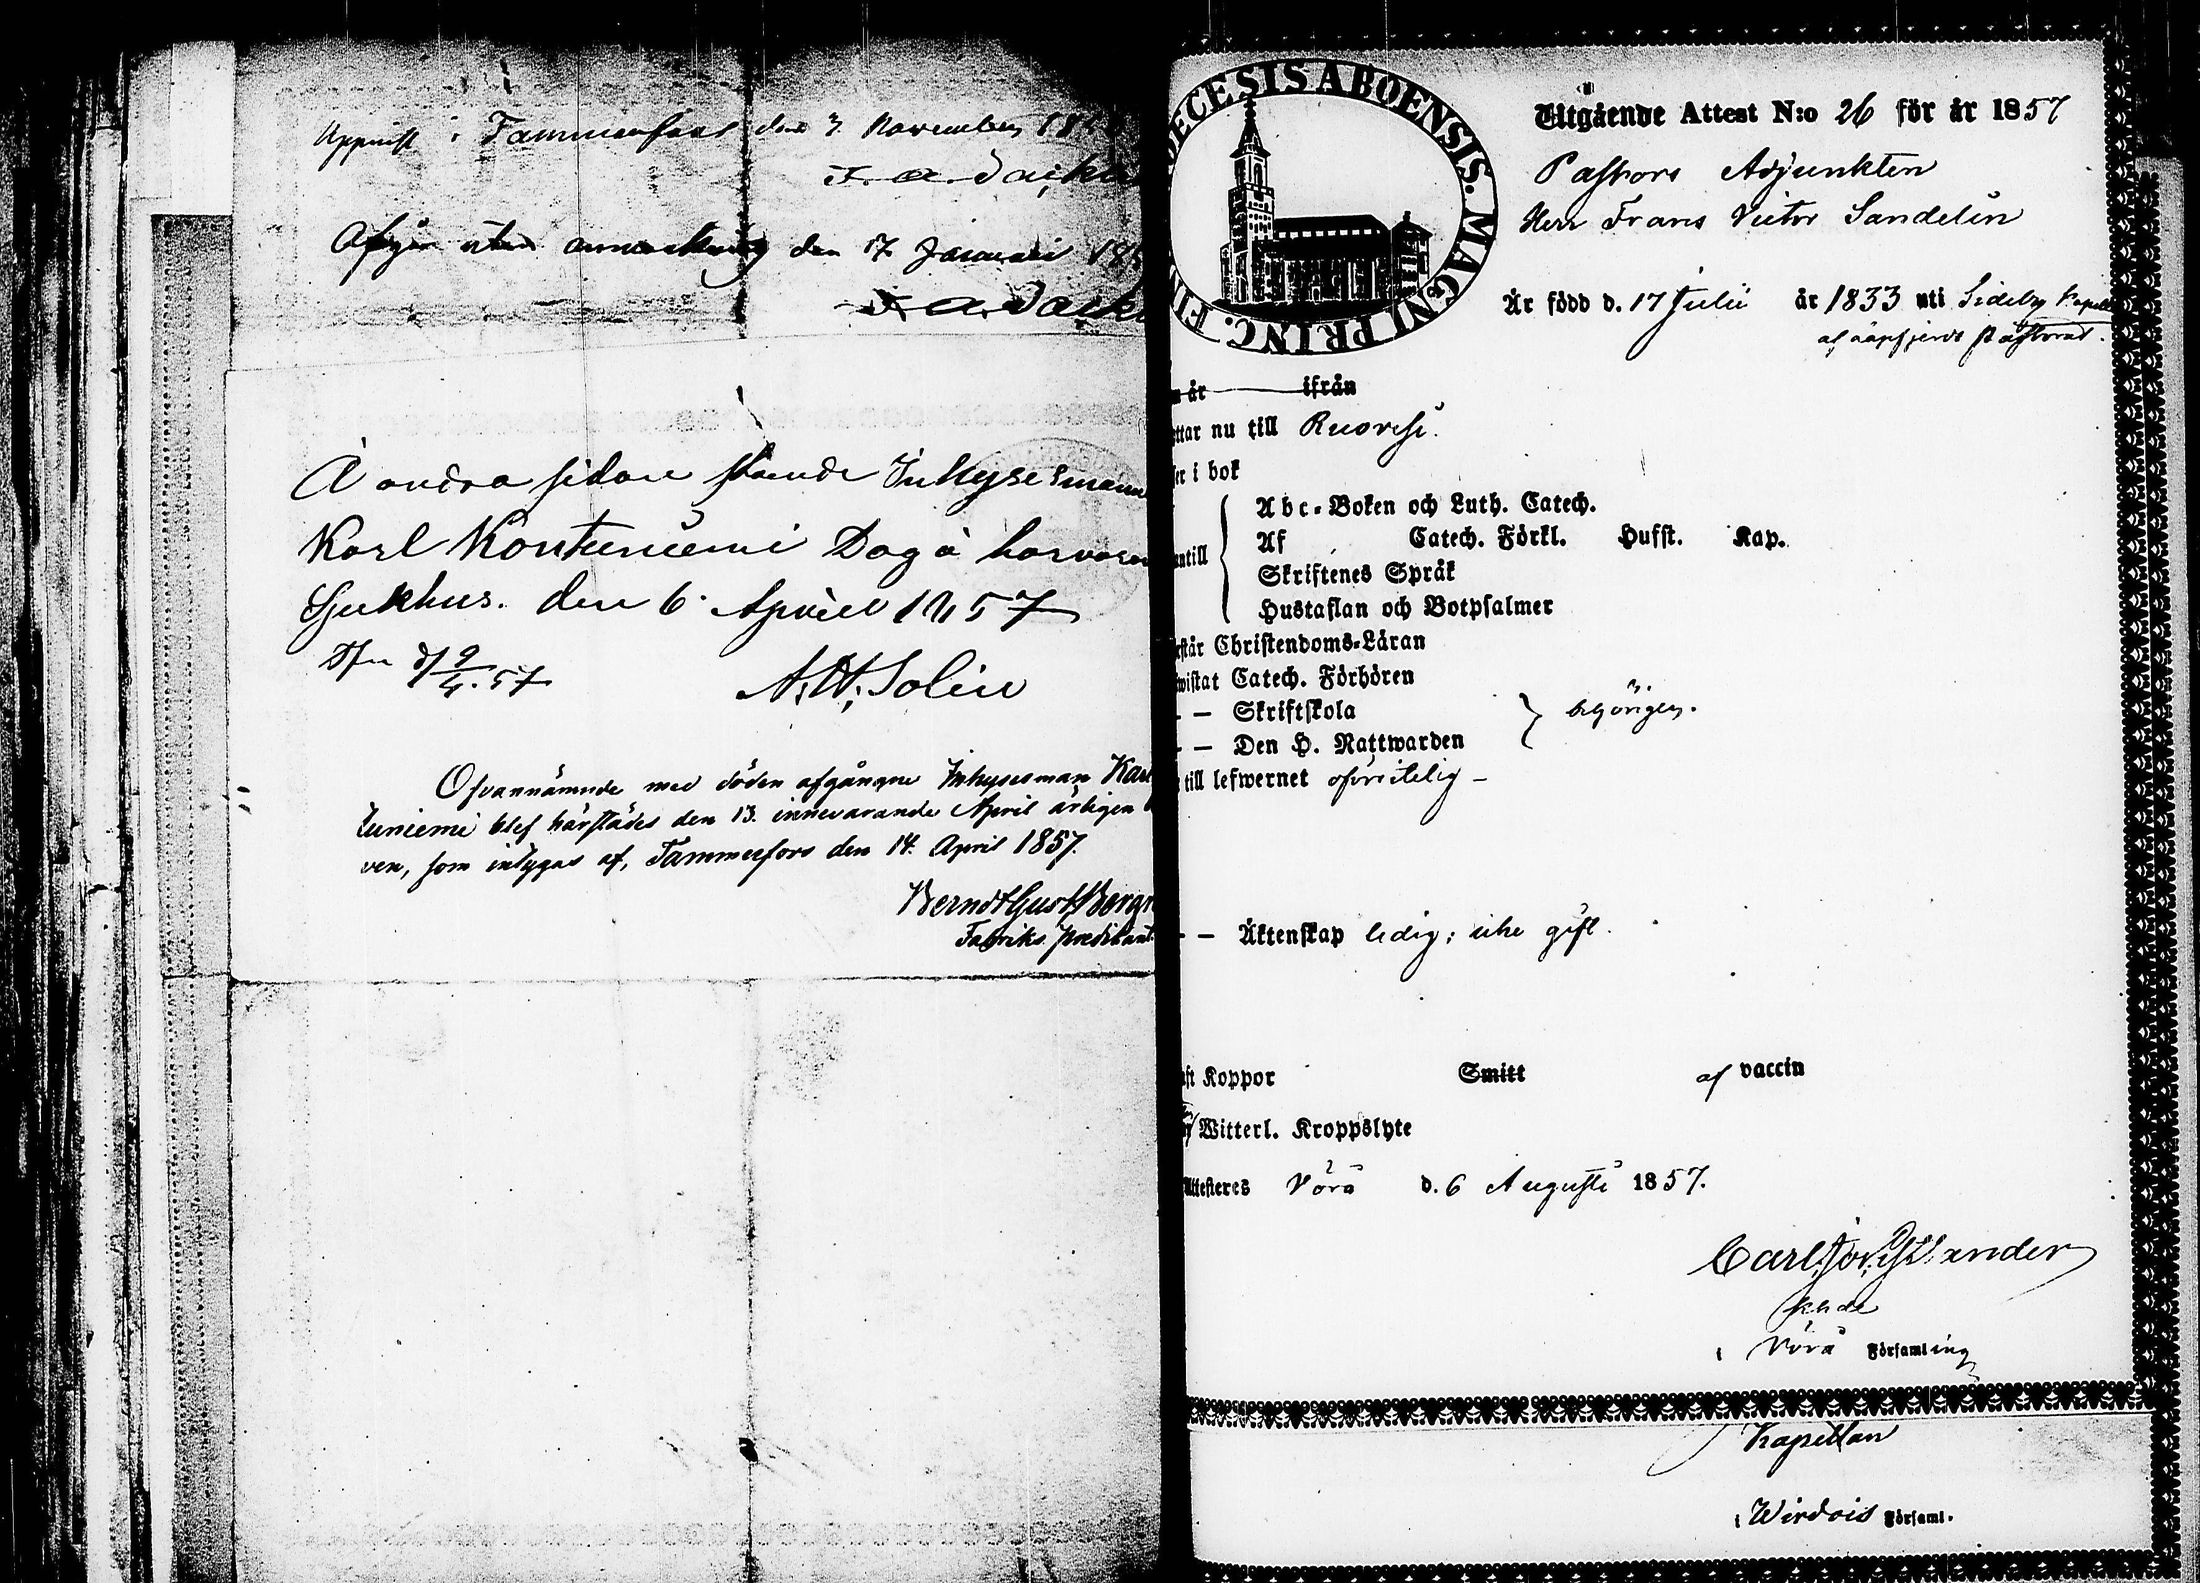 Uppvist i Tammerfors den 7 November 18
F. A. Daick
Afgår utan anmerkning den 17 Januari 18
F. A. Daick
Å andra sidan stånde Inhyses man
Karl Kontuniemi Dog å har varan
Sjukhus. den 6 April 1857
Tfrs d/ 9/4. 57
A. W. Solin
Ofvannämnde med döden afgångne Inhysesman Karl
tuniemi blef härstädes den 13. innevarande April ärligen b
ven, som intygas af, Tammerfors den 14. April 1857.
Berndt Gust. Bergr
Fabriks prædikant.
DECESIS ABOENSIS. MAGNI PRINC. FIN
Utgående Attest N:o 26 för år 1857
Pastors Adjunkten
Herr Frans Victor Sandelin
År född d. 17 Julii år 1833 uti Sideby Kapell
af Lappfjerds Pastorat.
n år ifrån
ttar nu till Ruovesi.
ser i bok
Abc-Boken och Luth. Catech.
Af Catech. Förkl. Hufst. Kap.
antill
Skriftenes Språk
Hustaflan och Botpsalmer
rstår Christendoms-Läran
wistat Catech. Förhören
- — Skriftskola
behörigen.
- — Den H. Nattwarden
till lefwernet oförvitelig –
- — Äktenskap ledig; icke gift.
aft Koppor Smitt af vaccin
Witterl. Kroppslyte
Attesteres Vörå d. 6 Augusti 1857.
Carl
khde
i Vörå Församling
Kapellan
i Wirdois Församl.